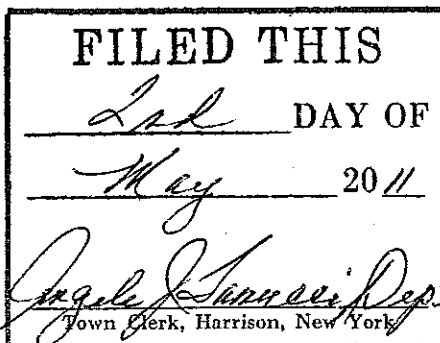 FILED THIS
2nd DAY OF
May 20 11
J. Dep.
Town Clerk, Harrison, New York